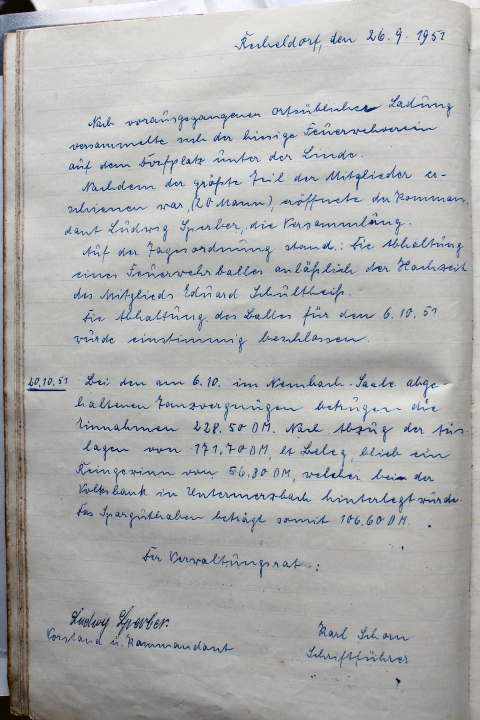 Recheldorf, den 26.9.1951
Nach vorausgegangener ortsüblicher Ladung
versammelte sich der hiesige Feuerwehrverein
auf dem Dorfplatz unter der Linde.
Nachdem der größte Teil der Mitglieder er-
schienen war, (20 Mann), eröffnete der Komman
dant Ludwig Sperber, die Versammlung.
Auf der Tagesordnung stand: Die Abhaltung
eines Feuerwehrballes anläßlich der Hochzeit
des Mitglieds Eduard Schultheiß.
Die Abhaltung des Balles für den 6.10.51
würde einstimmig beschlossen.
20.10.51 Bei den am 6.10. im Saale abge-
haltenen Tanzvergnügen betrugen die
Einnahmen 228.50 DM. Nach Abzug der Aus-
lagen von 171.70 DM, lt Beleg, blieb ein
Reingewinn von 56.80 DM, welcher bei der
Volksbank in Untermerzbach hinterlegt wurde.
Das Sparguthaben beträgt somit 106.60 DM.
Der Verwaltungsrat:
Ludwig Sperber
Vorstand u. Kommandant
Karl Schorn
Schriftführer